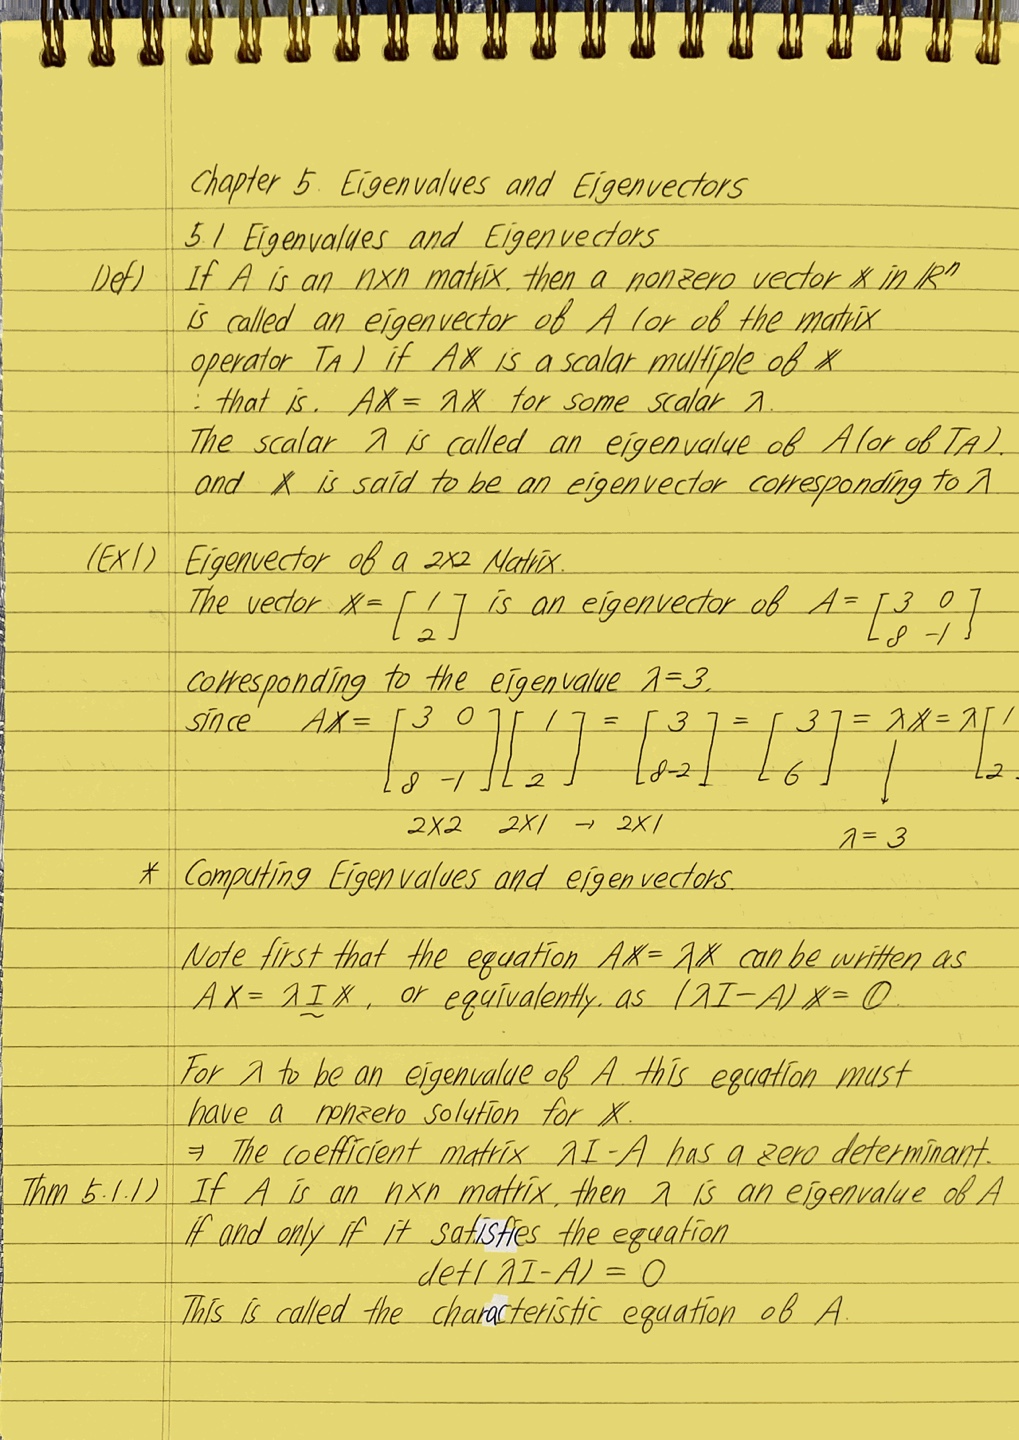 Chapter 5. Eigenvalues and Eigenvectors
5.1 Eigenvalues and Eigenvectors
Def) If A is an n×n matrix, then a nonzero vector 𝕩 in ℝⁿ
is called an eigenvector of A (or of the matrix
operator T_A) if A𝕩 is a scalar multiple of 𝕩
: that is. A𝕩 = λ𝕩 for some scalar λ.
The scalar λ is called an eigenvalue of A (or of T_A).
and 𝕩 is said to be an eigenvector corresponding to λ
(Ex1) Eigenvector of a 2×2 Matrix.
The vector 𝕩 = [1; 2] is an eigenvector of A = [3 0; 8 -1]
corresponding to the eigenvalue λ=3,
since A𝕩 = [3 0; 8 -1][1; 2] = [3; 8-2] = [3; 6] = λ𝕩 = λ[1; 2
2×2 2×1 → 2×1 λ=3
* Computing Eigenvalues and eigenvectors.
Note first that the equation A𝕩 = λ𝕩 can be written as
AX = λI𝕩, or equivalently. as (λI-A)𝕩 = 𝟘
For λ to be an eigenvalue of A this equation must
have a nonzero solution for 𝕩.
⇒ The coefficient matrix λI-A has a zero determinant.
Thm 5.1.1) If A is an n×n matrix, then λ is an eigenvalue of A
if and only if it satisfies the equation
det(λI-A) = 0
This is called the characteristic equation of A.